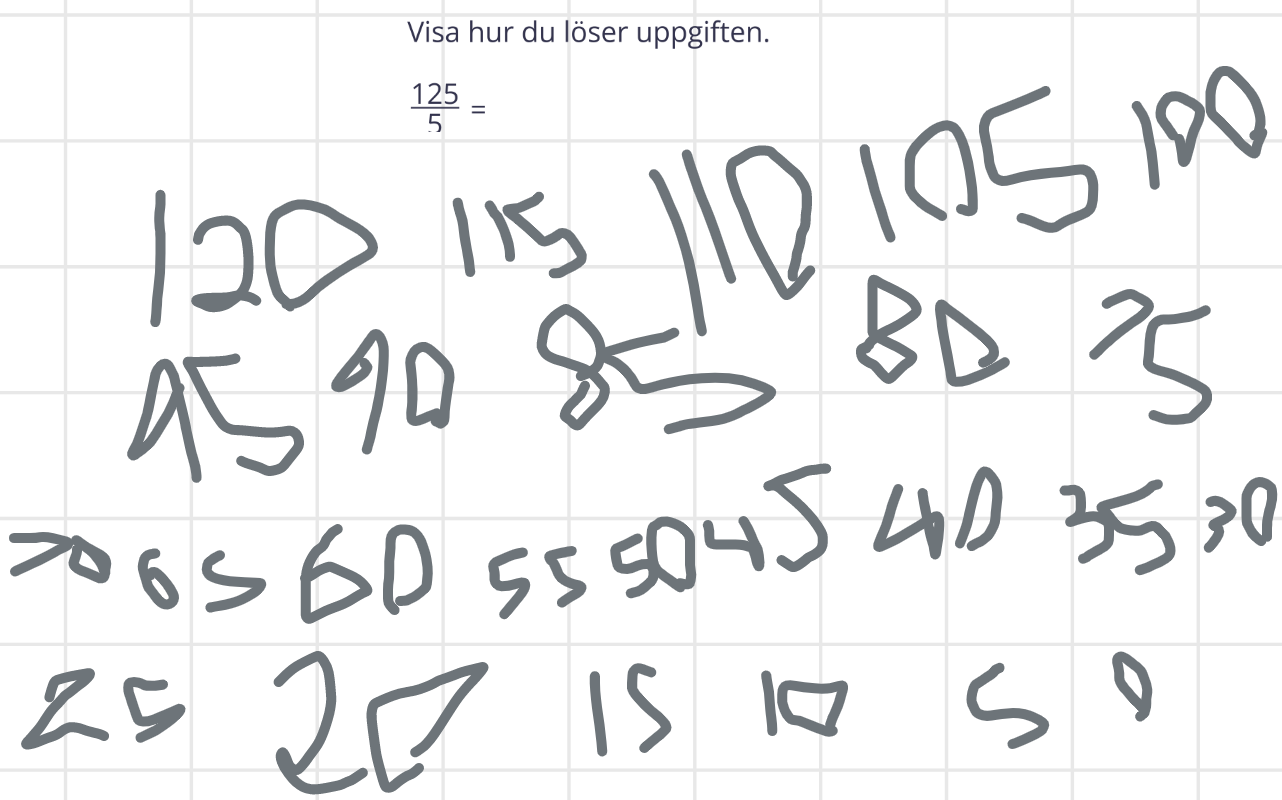 Visa hur du löser uppgiften.
125/5 =
120 115 110 105 100
95 90 85 80 75
70 65 60 55 50 45 40 35 30
25 20 15 10 5 0